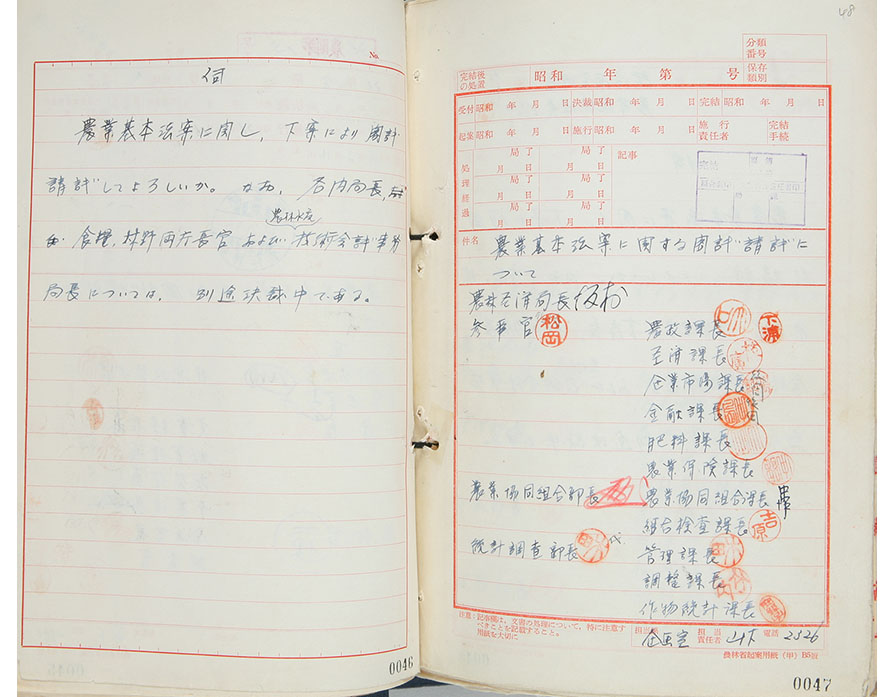 伺
農業基本法案に関し、下案により閣議
請議してよろしいか。なお、各内局長、
食糧、林野両庁長官および農林水産技術会議事務
局長については、別途決裁中である。
0046
48
分類番号
保存類別
完結後の処置
昭和 年 第 号
受付 昭和 年 月 日 決裁 昭和 年 月 日 完結 昭和 年 月 日
起案 昭和 年 月 日 施行 昭和 年 月 日 施行責任者 完結手続
処理経過
局了 月 日 局了 月 日
局了 月 日 局了 月 日
局了 月 日 局了 月 日
記事
完結
件名
農業基本法案に関する閣議請議に
ついて
農林経済局長
参事官 松岡
農政課長 下浦
経済課長
企業市場課長
金融課長
肥料課長
農業保険課長
農業協同組合部長 農業協同組合課長
組合検査課長 吉原
統計調査部長 管理課長
調整課長
作物統計課長
注意:記事欄は、文書の処理について、特に注意す
べきことを記載すること。
用紙を大切に
担当 企画室 担当責任者 山下 電話 2326
農林省起案用紙(甲)B5版
0047